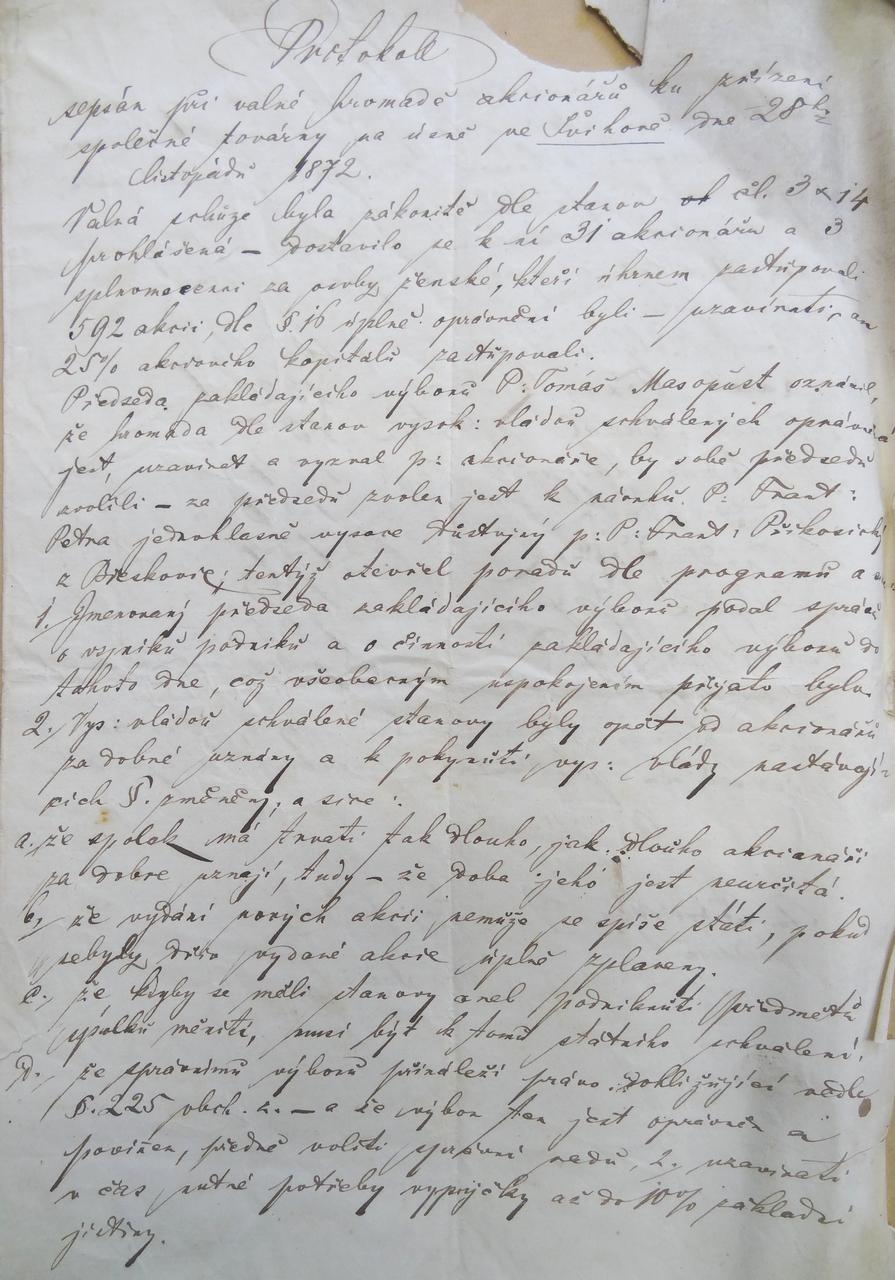 Protokoll
sepsán při valné hromadě akcionářů ku zřízení
společné továrny na ve Švihově dne 28ho
listopádu 1872.
Valná schůze byla zákonitě dle stanov čl. 3 & 14
prohlášená – dostavilo se k ní 31 akcionářu a 3
splnomocenni za osoby ženské, kteří úhrnem zastupovali
592 akcii, dle §. 16 úplně oprávněni byli – uzavírati, an
25% akciového kapitálu zastupovali.
Předseda zakládajícího výboru P: Tomáš Masopust oznámil,
že hromada dle stanov vysok: vládou schválených oprávněna
jest, uzavirat a vyzval p: akcionáře, by sobě předsedu
zvolili – za předsedu zvolen jest k návrhu P. Frant:
Petra jednohlasně vysoce důstojný p: P: Frant: Přikosický
z Břeskovic; tentýž otevřel poradu dle programu a
1. Jmenovaný předseda zakládajícího výboru podal správu
o vzniku podniku a o činnosti zakládajícího výboru do
tohoto dne, což všeobecným uspokojením přijato bylo.
2. Vys: vládou schválené stanovy byly opět od akcionářů
za dobné uznány a k pokynutí vys: vlády nastávají-
cich §. změněny, a sice:
a. že spolek má trvati tak dlouho, jak dlouho akcionáři
za dobré uznají, tudy – že doba jeho jest neurčitá.
b, že vydání nových akcii nemůže se spíše státi, pokud
nebyly dřív vydané akcie úplně zplaceny.
c. že kdyby se měli stanovy aneb podniknutí předmětu
spolku měniti, musí být k tomu státního schválení.
d. že správnímu výboru přináleží právo vedle
§. 225 obch. z. – a že výbor ten jest oprávněn a
povinen, předně voliti správní radu, 2. uzavirati
v čas nutné potřeby vypůjčky až do 10% základní
jistiny.